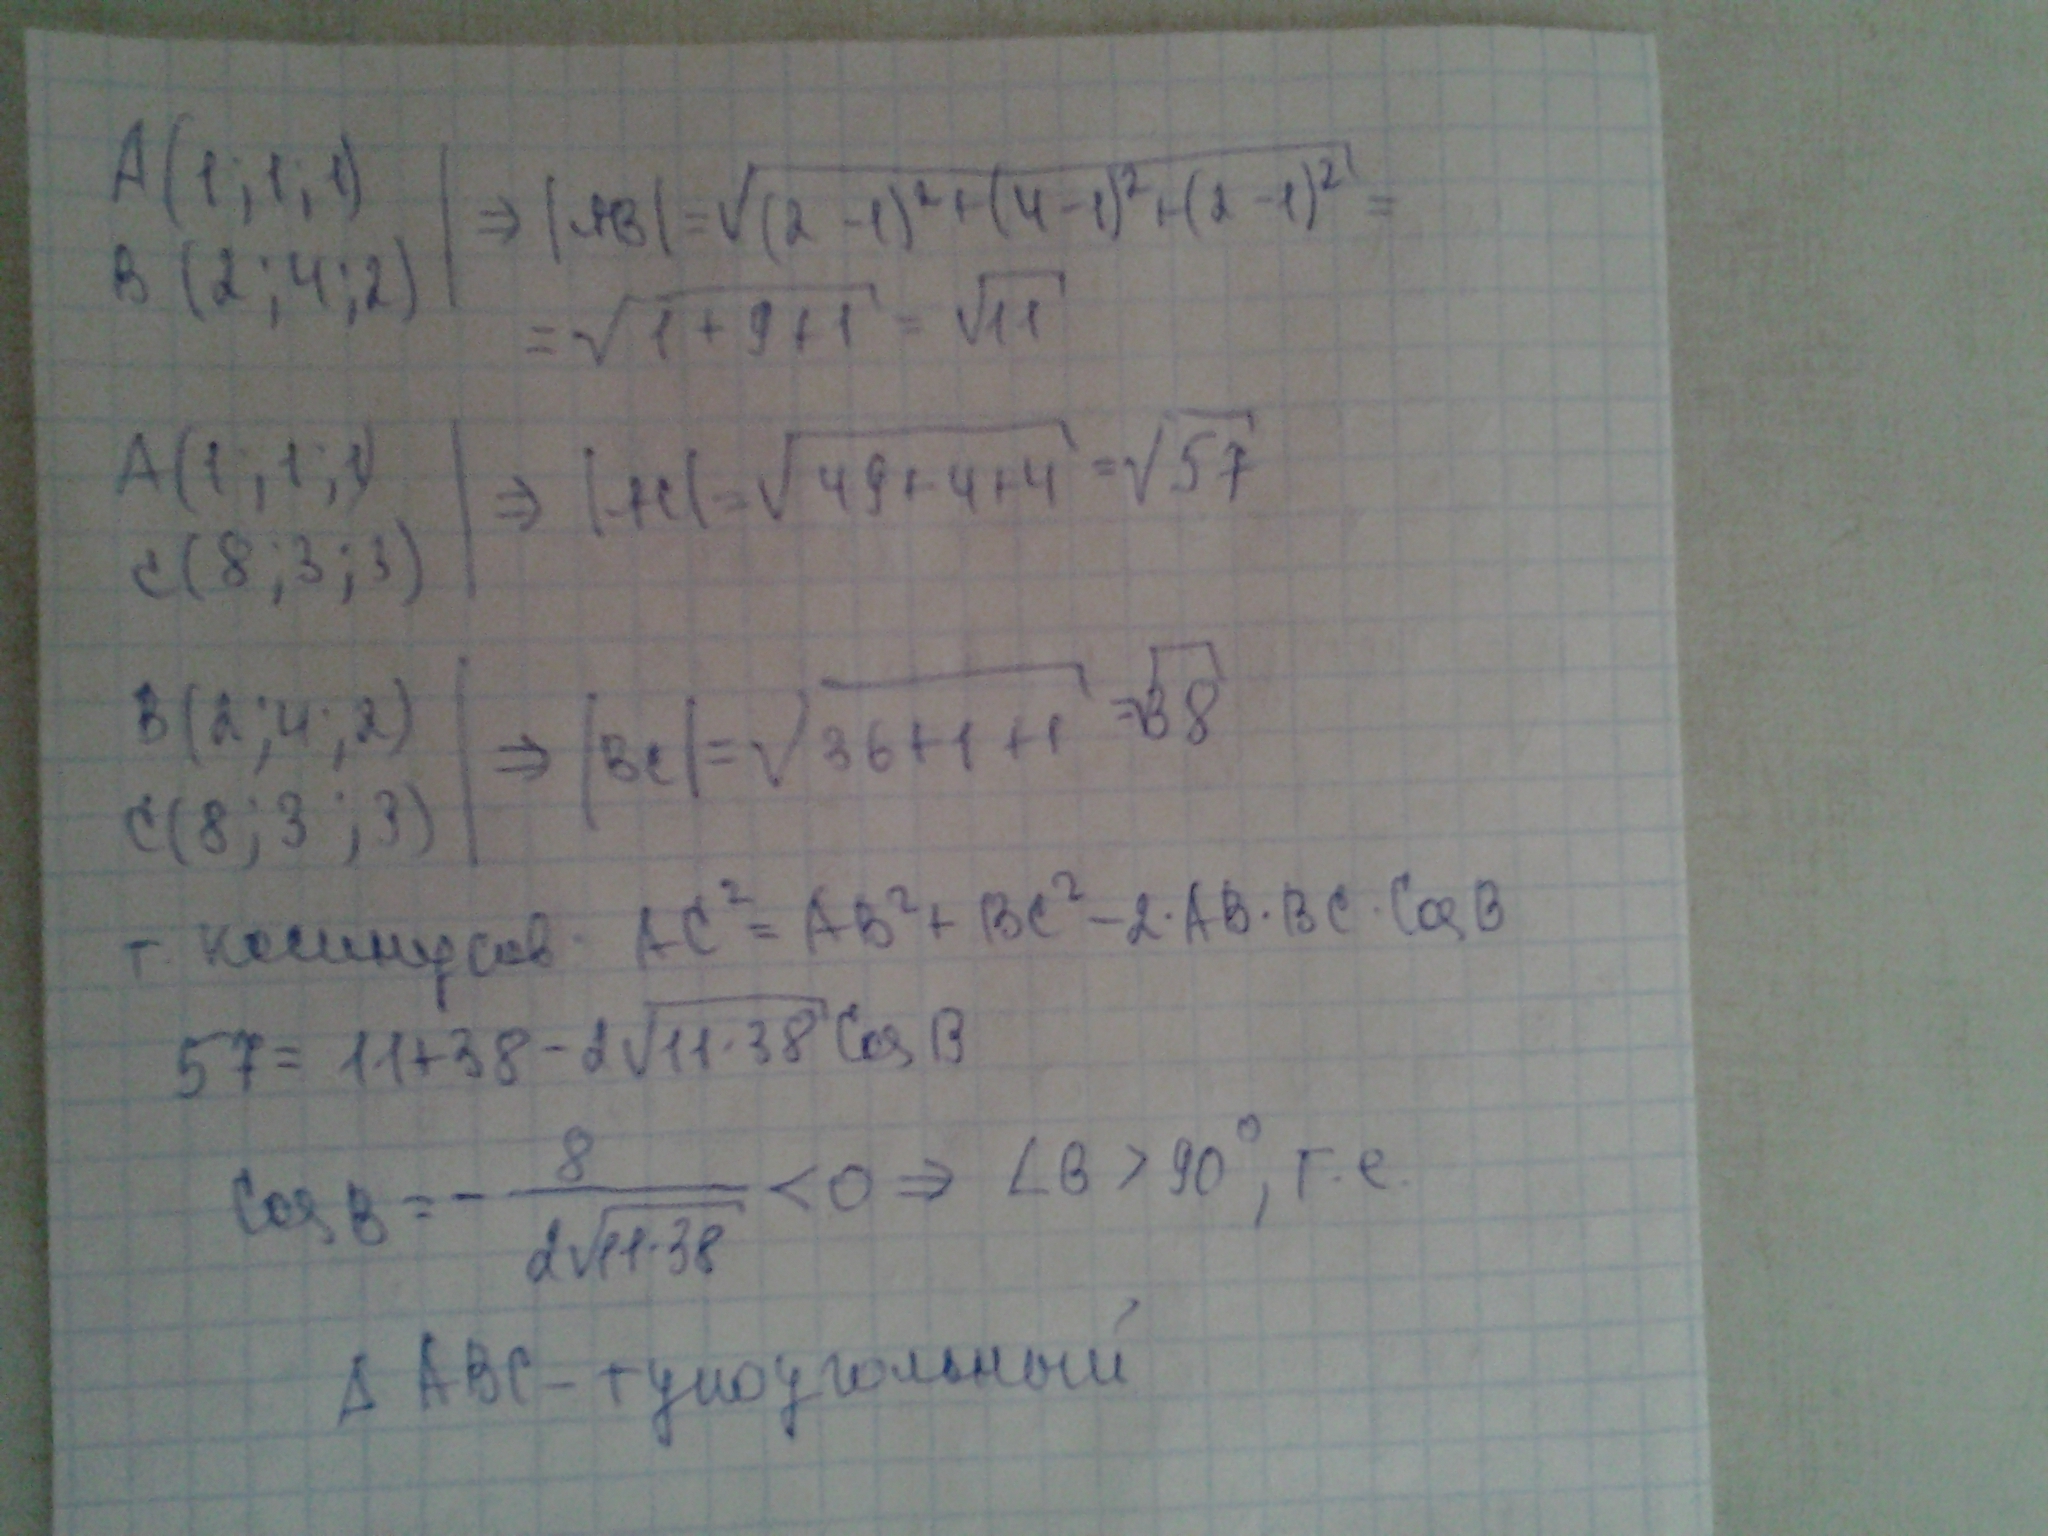 A(1;1;1)
B(2;4;2) ⇒ |AB| = √((2-1)²+(4-1)²+(2-1)²) =
= √(1+9+1) = √11
A(1;1;1)
C(8;3;3) ⇒ |AC| = √(49+4+4) = √57
B(2;4;2)
C(8;3;3) ⇒ |BC| = √(36+1+1) = √38
т. косинусов. AC² = AB² + BC² - 2·AB·BC·Cos B
57 = 11+38 - 2√(11·38) Cos B
Cos B = - 8/(2√(11·38)) < 0 ⇒ ∠B > 90°, т.е.
Δ ABC - тупоугольный